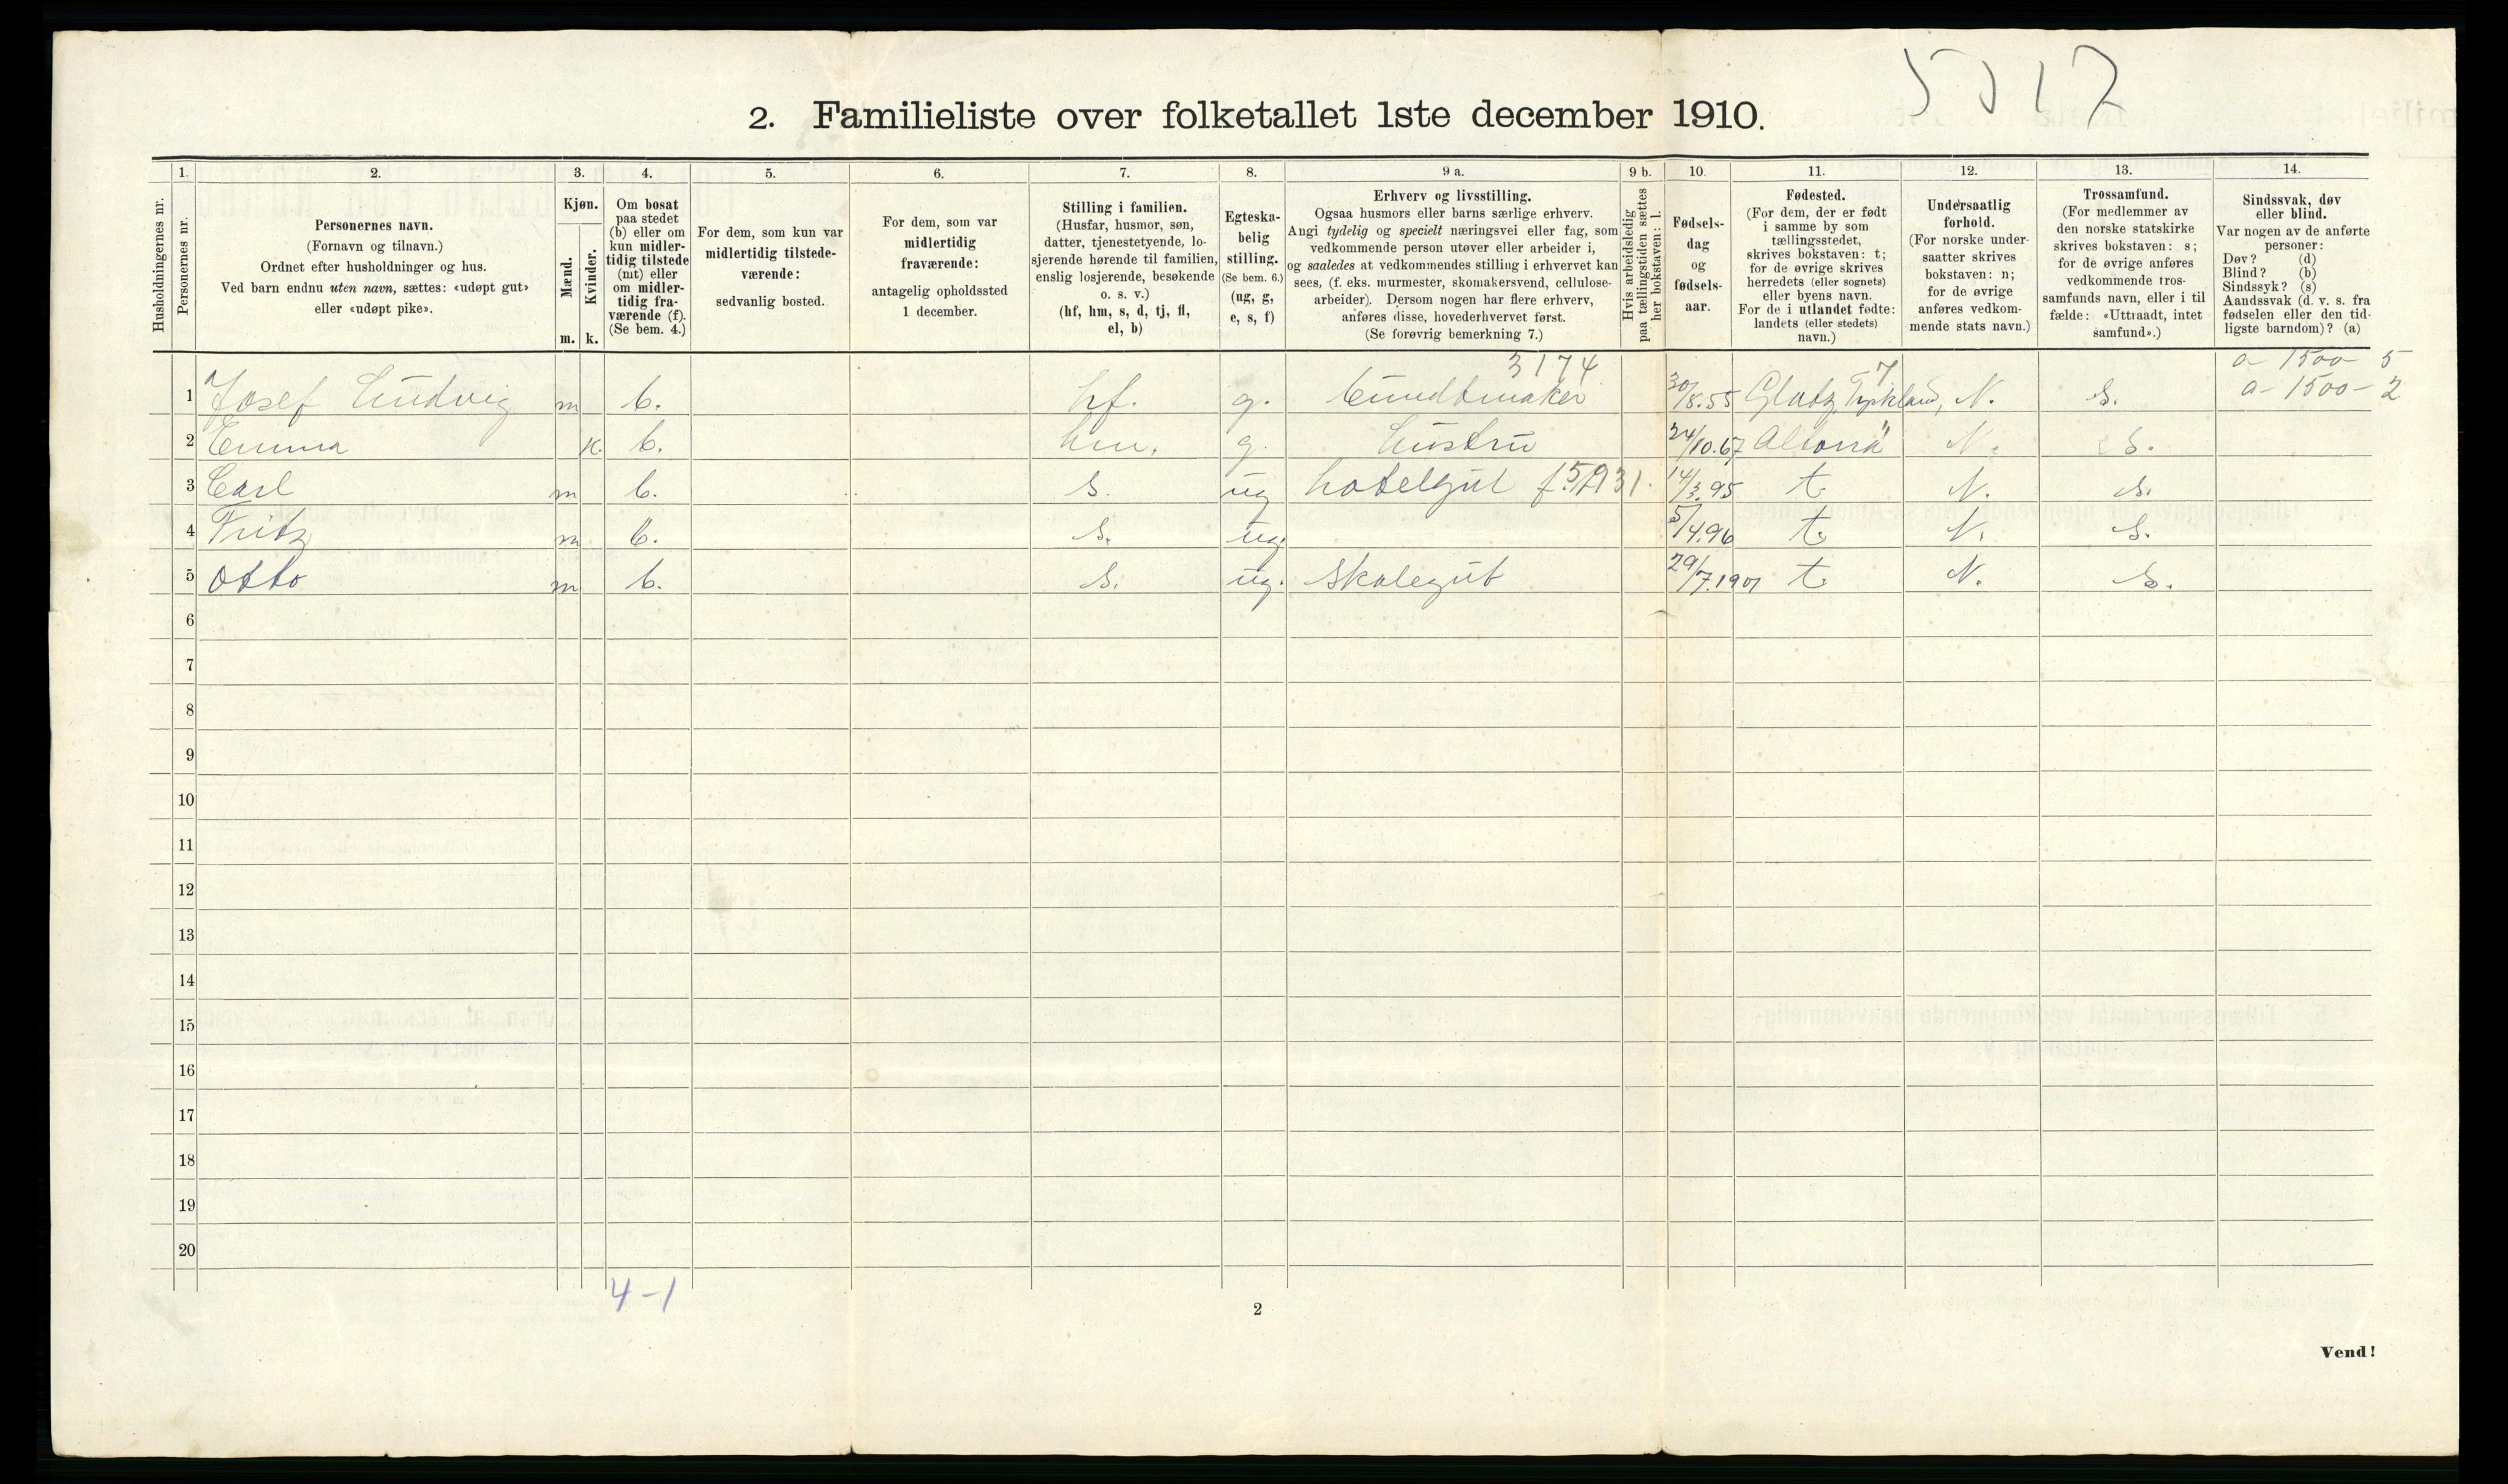 5317
2. Familieliste over folketallet 1ste december 1910.
1. 2. 3. 4. 5. 6. 7. 8. 9 a. 9 b. 10. 11. 12. 13. 14.
Husholdningernes nr.
Personernes nr.
Personernes navn.
(Fornavn og tilnavn.)
Ordnet efter husholdninger og hus.
Ved barn endnu uten navn, sættes: «udøpt gut»
eller «udøpt pike».
Kjøn.
Mænd.
Kvinder.
m. k.
Om bosat
paa stedet
(b) eller om
kun midler-
tidig tilstede
(mt) eller
om midler-
tidig fra-
værende (f).
(Se bem. 4.)
For dem, som kun var
midlertidig tilstede-
værende:
sedvanlig bosted.
For dem, som var
midlertidig
fraværende:
antagelig opholdssted
1 december.
Stilling i familien.
(Husfar, husmor, søn,
datter, tjenestetyende, lo-
sjerende hørende til familien,
enslig losjerende, besøkende
o. s. v.)
(hf, hm, s, d, tj, fl,
el, b)
Egteska-
belig
stilling.
(Se bem. 6.)
(ug, g,
e, s, f)
Erhverv og livsstilling.
Ogsaa husmors eller barns særlige erhverv.
Angi tydelig og specielt næringsvei eller fag, som
vedkommende person utøver eller arbeider i,
og saaledes at vedkommendes stilling i erhvervet kan
sees, (f. eks. murmester, skomakersvend, cellulose-
arbeider). Dersom nogen har flere erhverv,
anføres disse, hovederhvervet først.
(Se forøvrig bemerkning 7.)
Hvis arbeidsledig
paa tællingstiden sættes
her bokstaven: l.
Fødsels-
dag
og
fødsels-
aar.
Fødested.
(For dem, der er født
i samme by som
tællingsstedet,
skrives bokstaven: t;
for de øvrige skrives
herredets (eller sognets)
eller byens navn.
For de i utlandet fødte:
landets (eller stedets)
navn.)
Undersaatlig
forhold.
(For norske under-
saatter skrives
bokstaven: n;
for de øvrige
anføres vedkom-
mende stats navn.)
Trossamfund.
(For medlemmer av
den norske statskirke
skrives bokstaven: s;
for de øvrige anføres
vedkommende tros-
samfunds navn, eller i til
fælde: «Uttraadt, intet
samfund».)
Sindssvak, døv
eller blind.
Var nogen av de anførte
personer:
Døv? (d)
Blind? (b)
Sindssyk? (s)
Aandssvak (d. v. s. fra
fødselen eller den tid-
ligste barndom)? (a)
3174 7 a- 1500- 5
1 Josef Ludvig m b. hf. g. 30/8.55 Glatz, Tyskland, N. s. a- 1500- 2
2 Emma K. b. hm. g. Hustru 24/10.67 Altona " N. s.
3 Carl m b. s. ug hotelgut 14/3.95 t. N. s.
4 Fritz m b. s. ug. 5/4.96 t. N. s.
5 Otto m b. s. ug. Skolegut 29/7.1901 t. N. s.
6
7
8
9
10
11
12
13
14
15
16
17
18
19
20
4-1
2
Vend!